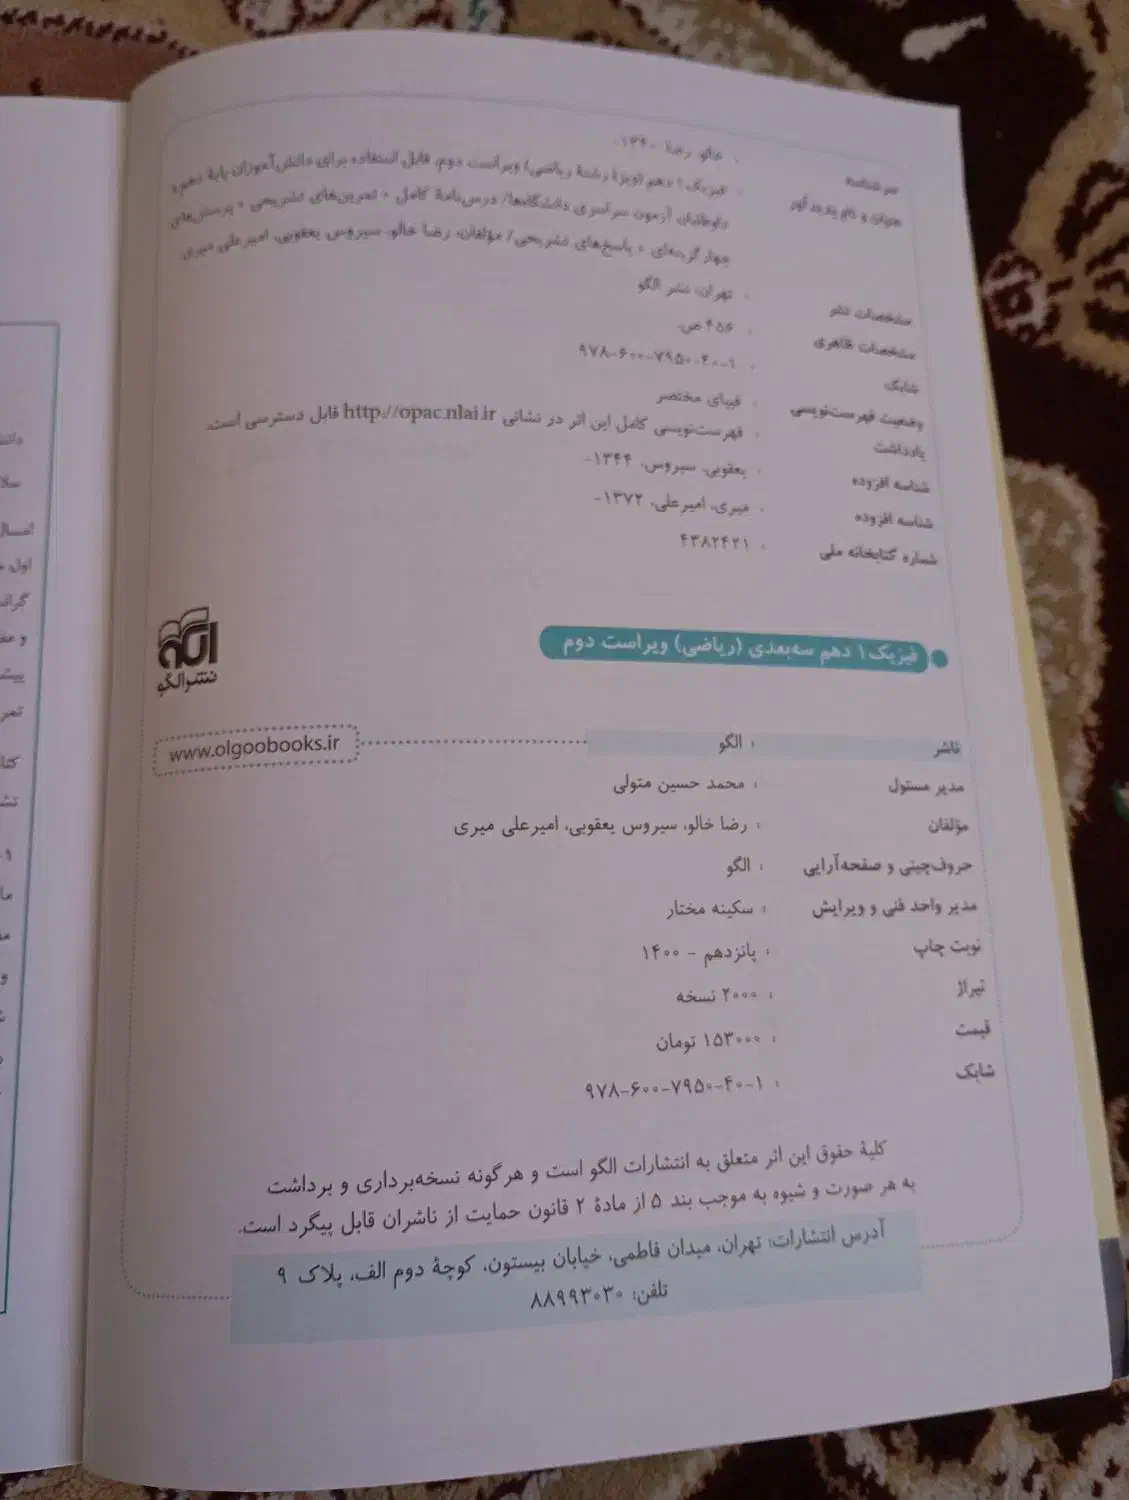 سرشناسه : خالو، رضا، ۱۳۴۰-
عنوان و نام پدیدآور : فیزیک ۱ دهم (ویژهٔ رشتهٔ ریاضی) ویراست دوم، قابل استفاده برای دانش‌آموزان پایهٔ دهم و
داوطلبان آزمون سراسری دانشگاه‌ها/ درس‌نامهٔ کامل + تمرین‌های تشریحی + پرسش‌های
چهارگزینه‌ای + پاسخ‌های تشریحی/ مؤلفان، رضا خالو، سیروس یعقوبی، امیرعلی میری
مشخصات نشر : تهران: نشر الگو
مشخصات ظاهری : ۴۵۶ ص.
شابک : ۹۷۸-۶۰۰-۷۹۵۰-۴۰-۱
وضعیت فهرست‌نویسی : فیپای مختصر
یادداشت : فهرست‌نویسی کامل این اثر در نشانی http://opac.nlai.ir قابل دسترسی است.
شناسه افزوده : یعقوبی، سیروس، ۱۳۴۴-
شناسه افزوده : میری، امیرعلی، ۱۳۷۲-
شماره کتابخانه ملی : ۴۳۸۲۴۲۱
نشر الگو
فیزیک ۱ دهم سه‌بعدی (ریاضی) ویراست دوم
ناشر : الگو
www.olgoobooks.ir
مدیر مسئول : محمد حسین متولی
مؤلفان : رضا خالو، سیروس یعقوبی، امیرعلی میری
حروف‌چینی و صفحه‌آرایی : الگو
مدیر واحد فنی و ویرایش : سکینه مختار
نوبت چاپ : پانزدهم - ۱۴۰۰
تیراژ : ۲۰۰۰ نسخه
قیمت : ۱۵۳۰۰۰ تومان
شابک : ۹۷۸-۶۰۰-۷۹۵۰-۴۰-۱
کلیهٔ حقوق این اثر متعلق به انتشارات الگو است و هرگونه نسخه‌برداری و برداشت
به هر صورت و شیوه به موجب بند ۵ از مادهٔ ۲ قانون حمایت از ناشران قابل پیگرد است.
آدرس انتشارات: تهران، میدان فاطمی، خیابان بیستون، کوچهٔ دوم الف، پلاک ۹
تلفن: ۸۸۹۹۳۰۳۰